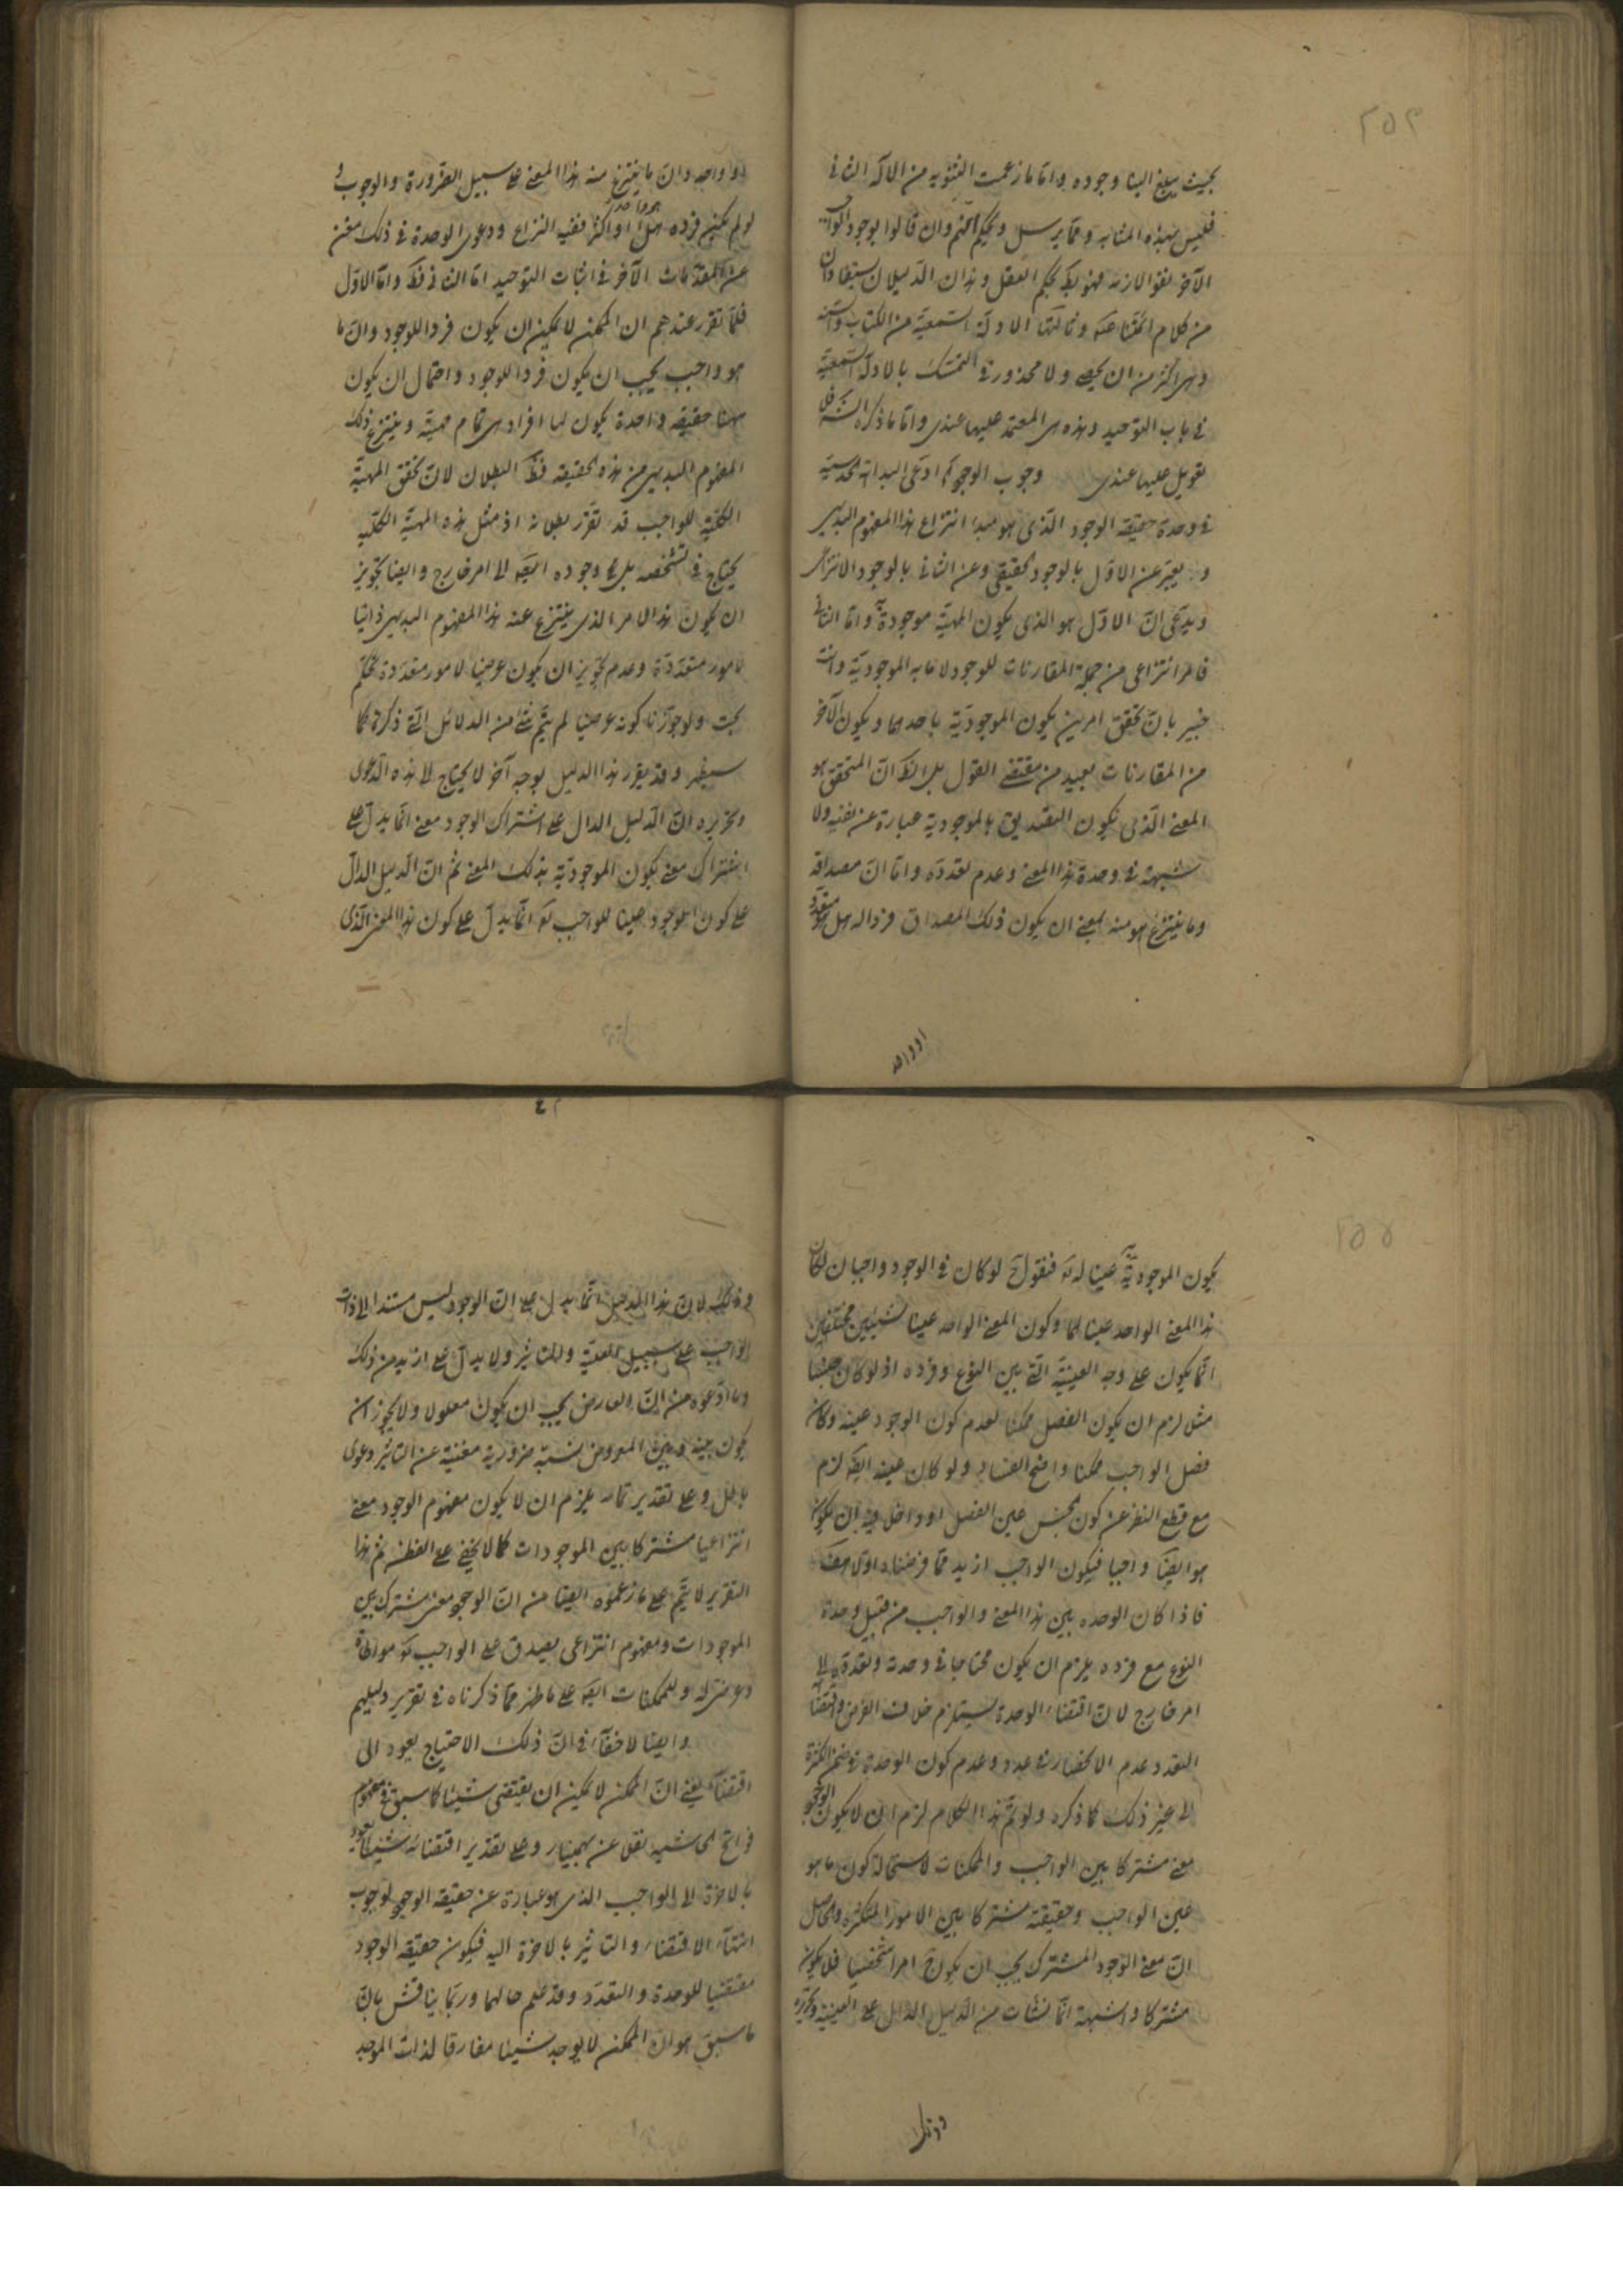 ٢٥٤
بحيث يبلغ الينا وجوده واما ما زعمت الثنويه من الاله الثانى
فليس بهذه المثابه ومما يرسل ويحكم وان قالوا بوجود
الآخر نعوذ هو لظ بحكم العقل وهذان الدليلان يستفادان
من كلام ائمتنا وثالثها الادلة السمعية من الكتاب والسنة
وهى اكثر من ان يحصى ولا محذور فى التمسك بالادلة السمعية
فى باب التوحيد وهذه هى المعتمد عليها عندى واما ما ذكره
تعويل عليها عندى وجوب الوجود ادعى البداهة الحدسية
فى وحدة حقيقة الوجود الذى هو مبدا انتزاع هذا المفهوم البديهى
و يعبر عن الاول بالوجود الحقيقى وعن الثانى بالوجود الانتزاعى
ويدعى ان الاول هو الذى يكون المهية موجودة به واما الثانى
فامر انتزاعى من جملة المقارنات للوجود لا ما به الموجودية وانت
خبير بان تحقق امرين يكون الموجودية باحدهما ويكون الآخر
من المقارنات بعيد من مقتضى العقول بل الظ ان المتحقق هو
المعنى الذى يكون التصديق بالموجودية عبارة عن نفسه ولا
شبهة فى وحدة هذا المعنى وعدم تعدده واما ان مصداقه
وما ينتزع هو منه بمعنى ان يكون ذلك المصداق فردا له هل هو متعدد
او واحد
او واحد وان ما ينتزع منه هذا المعنى على سبيل الضرورة والوجوب
لو لم يكن فرده هل هو واحد او اكثر ففيه النزاع ودعوى الوحدة فى ذلك مغن
عن المقدمات الآخر فى اثبات التوحيد اما الثانى فظ واما الاول
فلما تقرر عندهم ان الممكن لا يمكن ان يكون فردا للوجود وان ما
هو واجب يجب ان يكون فردا للوجود واحتمال ان يكون
هنا حقيقة واحدة يكون لها افراد هى تمام مهيته وينتزع ذلك
المفهوم البديهى من هذه الحقيقة فظ البطلان لان تحقق المهية
الكلية للواجب قد تقرر بطلانه اذ مثل هذه المهية الكلية
يحتاج فى تشخصه بل فى وجوده ايضا الى امر خارج وايضا تجويز
ان يكون هذا الامر الذى ينتزع عنه هذا المفهوم البديهى ذاتيا
لامور متعددة وعدم تجويز ان يكون عرضيا لامور متعددة تحكم
بحت ولو جوزنا كونه عرضيا لم يتم شئ من الدلائل التى ذكرت كما
سيظهر وقد يقرر هذا الدليل بوجه آخر لا يحتاج الى هذه الدعوى
وتحريره ان الدليل الدال على اشتراك الوجود معنى انما يدل على
اشتراك معنى يكون الموجودية بذلك المعنى ثم ان الدليل الدال
على كون الوجود عينا للواجب تع انما يدل على كون هذا المعنى الذى
٢٥٥
يكون الموجودية به عينا له تع فنقول لو كان فى الوجود واجبان لكان
هذا المعنى الواحد عينا لهما وكون المعنى الواحد عينا لشيئين مختلفين
انما يكون على وجه العينية التى بين النوع وفرده اذ لو كان جنسا
مثلا لزم ان يكون الفصل ممكنا لعدم كون الوجود عينه وكان
فصل الواجب ممكنا واضح الفساد ولو كان عينه ايضا لزم
مع قطع النظر عن كون الجنس عين الفصل او داخلا فيه ان يكون
هو ايضا واجبا فيكون الواجب ازيد مما فرضناه اولا هف
فاذا كان الوحده بين هذا المعنى والواجب من قبيل وحدة
النوع مع فرده يلزم ان يكون محتاجا فى وحدته وتعدده الى
امر خارج لان اقتضاء الوحدة يستلزم خلاف الفرض واقتضاء
التعدد عدم الانحصار فى عدد وعدم كون الوحدة فى ضمن الكثرة
الى غير ذلك كما ذكره ولو تم هذا الكلام لزم ان لا يكون الوجود
معنى مشتركا بين الواجب والممكنات لاستحالة كون ما هو
عين الواجب وحقيقته مشتركا بين الامور المتكثره والحاصل
ان معنى الوجود المشترك يجب ان يكون امرا شخصيا فلا يكون
مشتركا والشبهة انما نشأت من الدليل الدال على العينية وتحريره
وذلك
وذلك لان هذا الدليل انما يدل على ان الوجود ليس مستندا الى ذات
الواجب على سبيل العلية والتاثير ولا يدل على ازيد من ذلك
وما ادعوه من ان العارض يجب ان يكون معلولا ولا يجوز ان
يكون بينه وبين المعروض نسبة ضرورية مغنية عن التاثير دعوى
باطل وعلى تقدير تمامه يلزم ان لا يكون مفهوم الوجود معنى
انتزاعيا مشتركا بين الموجودات كما لا يخفى على الفطن ثم هذا
التقرير لا يتم على ما زعموه ايضا من ان الوجود معنى مشترك بين
الموجودات ومفهوم انتزاعى يصدق على الواجب تع مواطاة
وعرضى له وللممكنات ايضا على ما ظهر مما ذكرناه فى تقرير دليلهم
وايضا لا خفاء فى ان ذلك الاحتياج يعود الى
اقتضاء يعنى ان الممكن لا يمكن ان يقتضى شيئا كما سبق فى مفهوم
فواتح الحاشيه نقلا عن بهمنيار وعلى تقدير اقتضائه شيئا يعود
بالاخرة الى الواجب الذى هو عبارة عن حقيقة الوجود لوجوب
انتهاء الاقتضاء والتاثير بالاخرة اليه فيكون حقيقة الوجود
مقتضيا للوحدة والتعدد وقد علم حالهما وربما يناقش بان
ما سبق هو ان الممكن لا يوجد شيئا مفارقا لذات الموجد